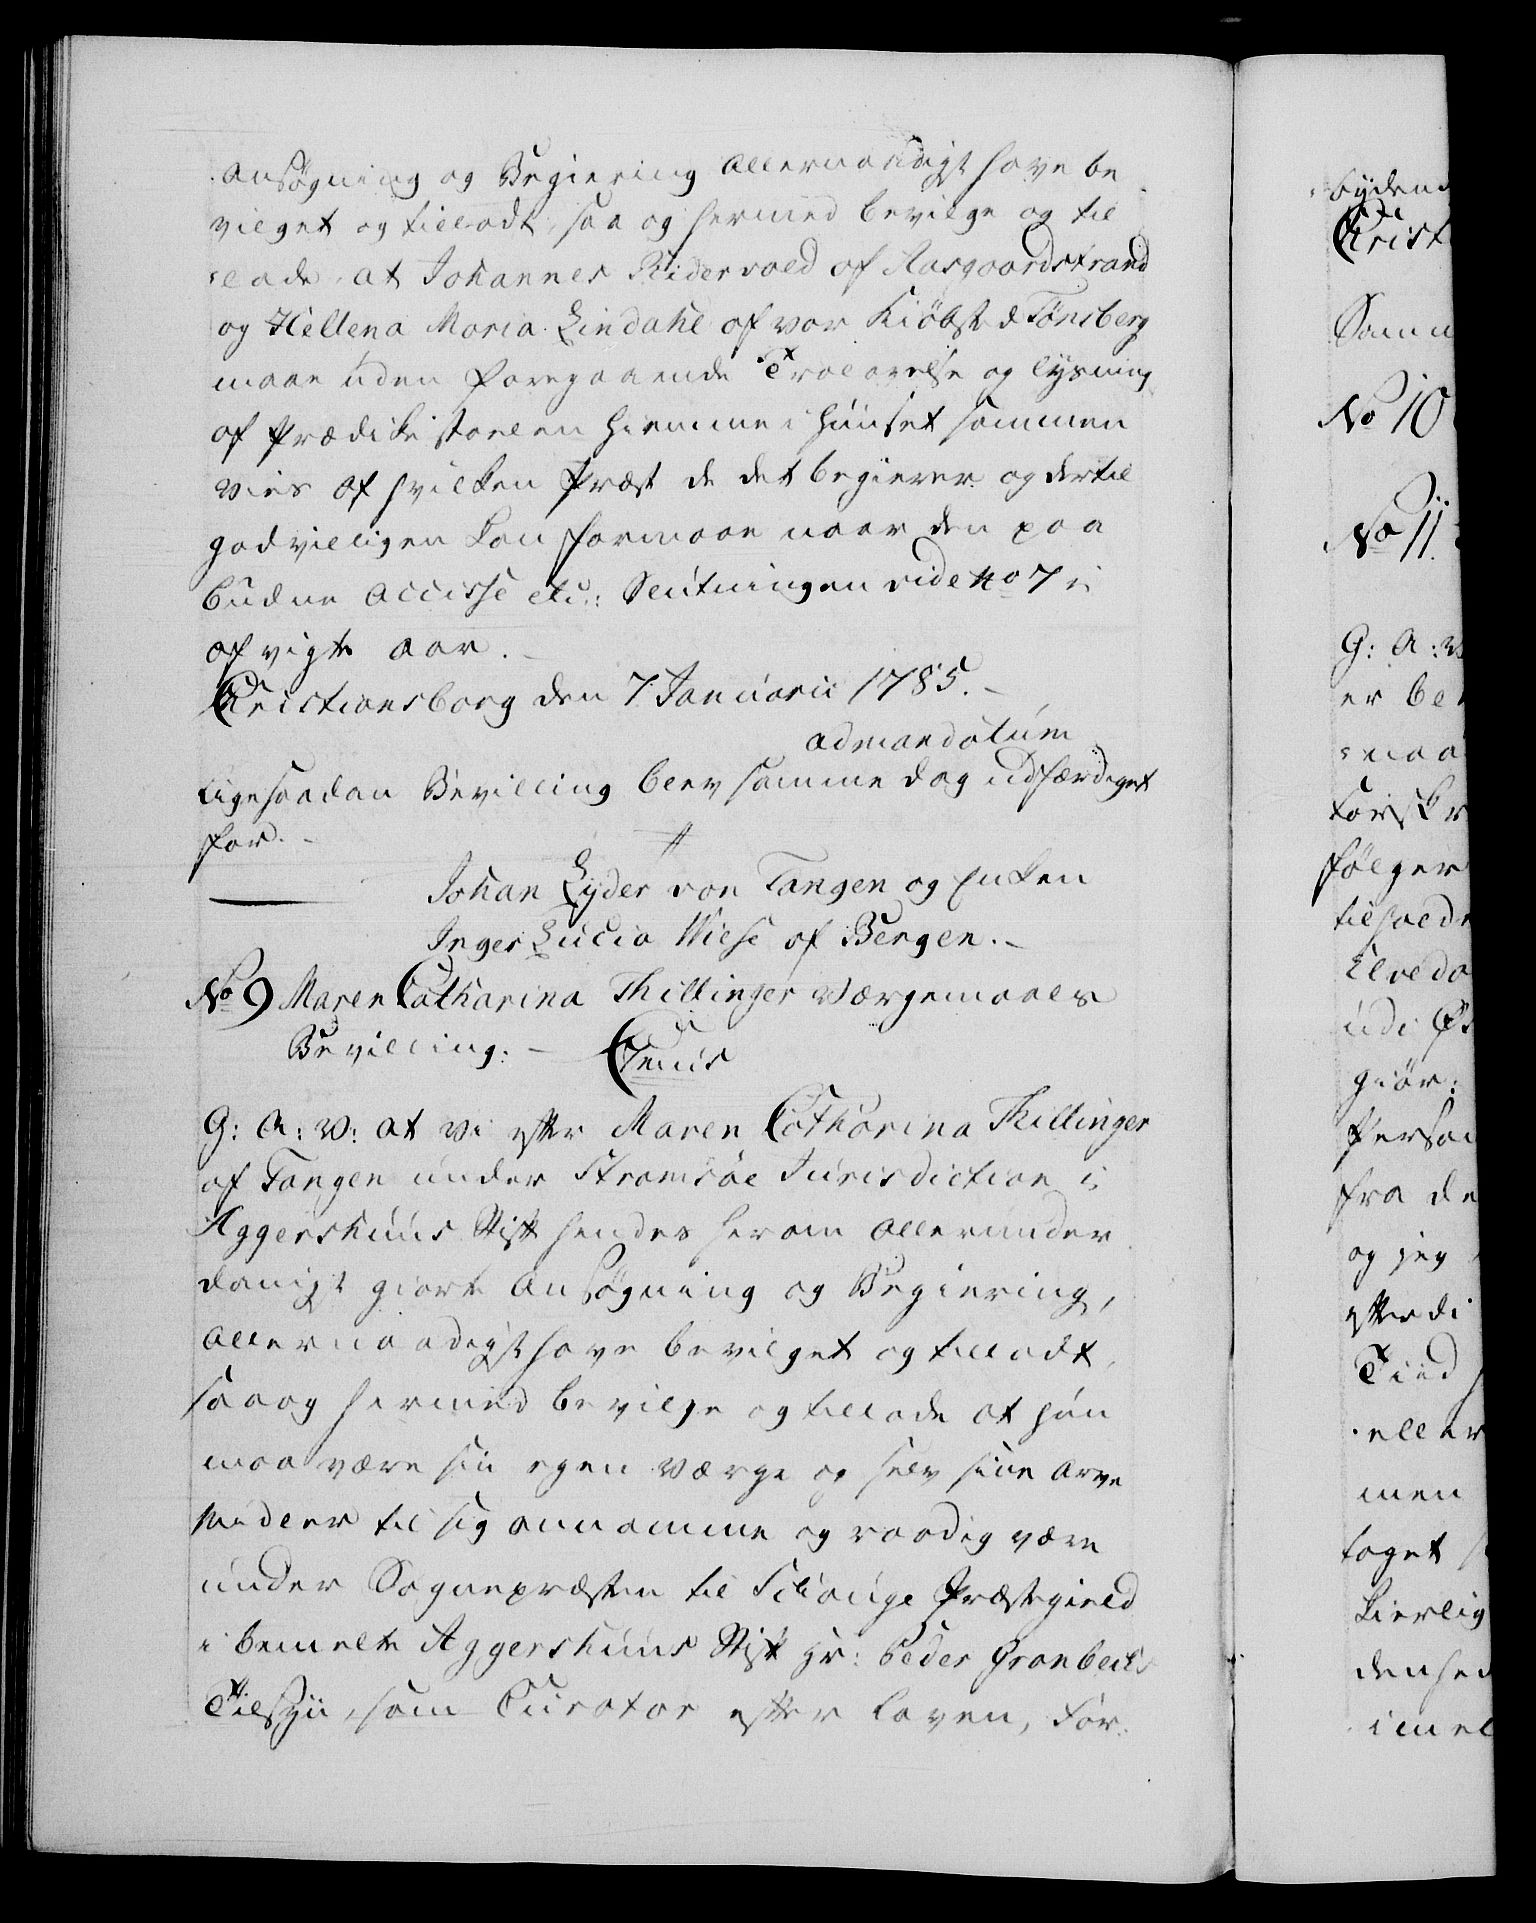 Ansøgning og Begiering Allernaadigst have be
vilget og tilladt, saa og hermed bevilge og til
lade, at Johannes Ridervold af Aasgaardstrand
og Hellena Maria Lindahl af vor Kiöbsted Tønsberg
maae uden foregaaende Trolovelse og lysning
af Prædikestoelen hiemme i Huuset sammen
vies af hvilken Præst de det begierer og dertil
godvilligen kan formaae naar den paa
budne Accisse etc: Slutningen vide No 7 i
afvigte Aar.
Christiansborg den 7 Januarii 1785.
ad mandatum
Ligesaadan Bevilling blev samme dag udfærdiget
for.
Johan Lyder von Tangen og Enken
Inger Lucia Wiese af Bergen.
No 9 Maren Catharina Thillinger Værgemaals
Bevilling. Gratis
G: A: V: at Vi efter Maren Catharina Thillinger
af Tangen under Stromsöe Jurisdiction i
Aggershuus Stift hendes herom Allerunder
danigst giorte Ansøgning og Begiering,
Allernaadigst have bevilget og tilladt,
saa og hermed bevilge og tillade at hun
maa være sin egen Værge og selv sine Arve
Midler til sig annamme og raadig være
under Sognepræsten til Schouge Præstegield
i bemelte Aggershuus Stift Hr: Peder Gronbechs
Tilsyn, som Curator efter Loven, for
bydend
Christ
Samm
No 10
No 11
G: A: V
er be
maa
Forskr
følger
tilhold
Elveda
udi
giör:
Person
fra de
og jeg
efterdi
Tiid
eller
men
taget
kierlig
densed
imel